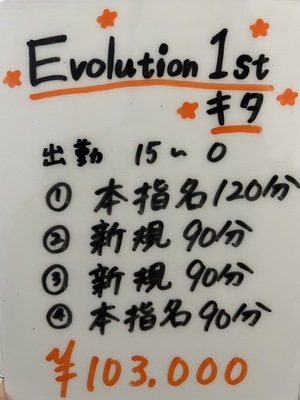 Evolution 1st
キタ
出勤 15〜0
① 本指名120分
② 新規 90分
③ 新規 90分
④ 本指名90分
¥103.000